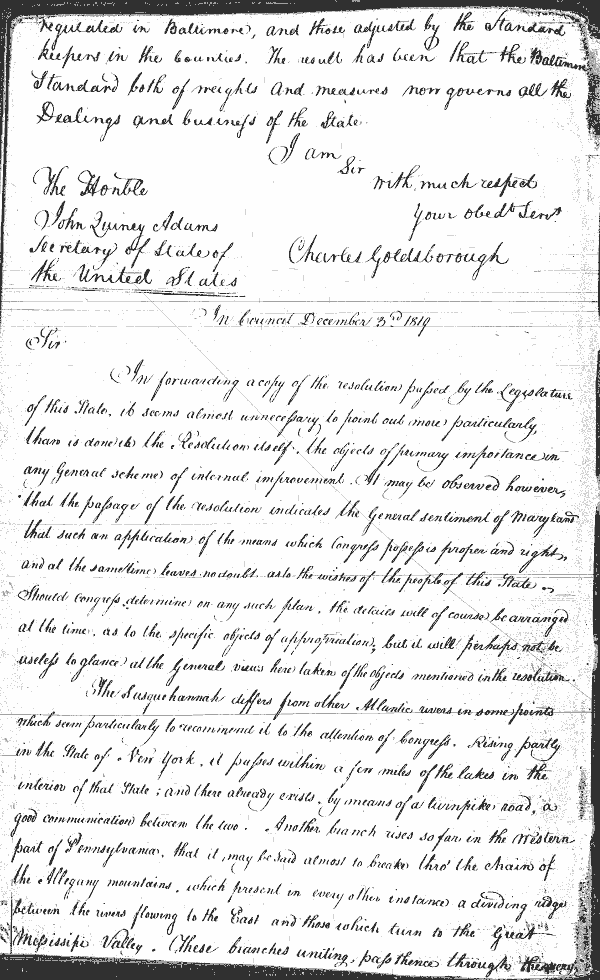 regulated in Baltimore, and those adjusted by the Standard
keepers in the Counties. The result has been that the Baltimore
Standard both of weights and measures now governs all the
Dealings and business of the State.
I am
Sir
with much respect
The Honble
your obedt Servt
John Quincy Adams
Secretary of State of
Charles Goldsborough
the United States
In Council December 3rd 1819
Sir
In forwarding a copy of the resolution passed by the Legislature
of this State, it seems almost unnecessary to point out more particularly,
than is done in the Resolution itself, the objects of primary importance in
any General scheme of internal improvement. It may be observed however,
that the passage of the resolution indicates the General sentiment of Maryland
that such an application of the means which Congress possess is proper and right,
and at the same time leaves no doubt as to the wishes of the people of this State.
Should congress determine on any such plan, the details will of course be arranged
at the time, as to the specific objects of appropriation, but it will perhaps not be
useless to glance at the General views here taken of the objects mentioned in the resolution.
The Susquehannah differs from other Atlantic rivers in some points
which seem particularly to recommend it to the attention of Congress. Rising partly
in the State of New York, it passes within a few miles of the lakes in the
interior of that State; and there already exists, by means of a turnpike road, a
good communication between the two. Another branch rises so far in the Western
part of Pennsylvania, that it may be said almost to break thro' the chain of
the Allegany mountains, which present in every other instance a dividing ridge
between the rivers flowing to the East and those which turn to the Great
Messisipi Valley. These branches uniting, pass thence through the very